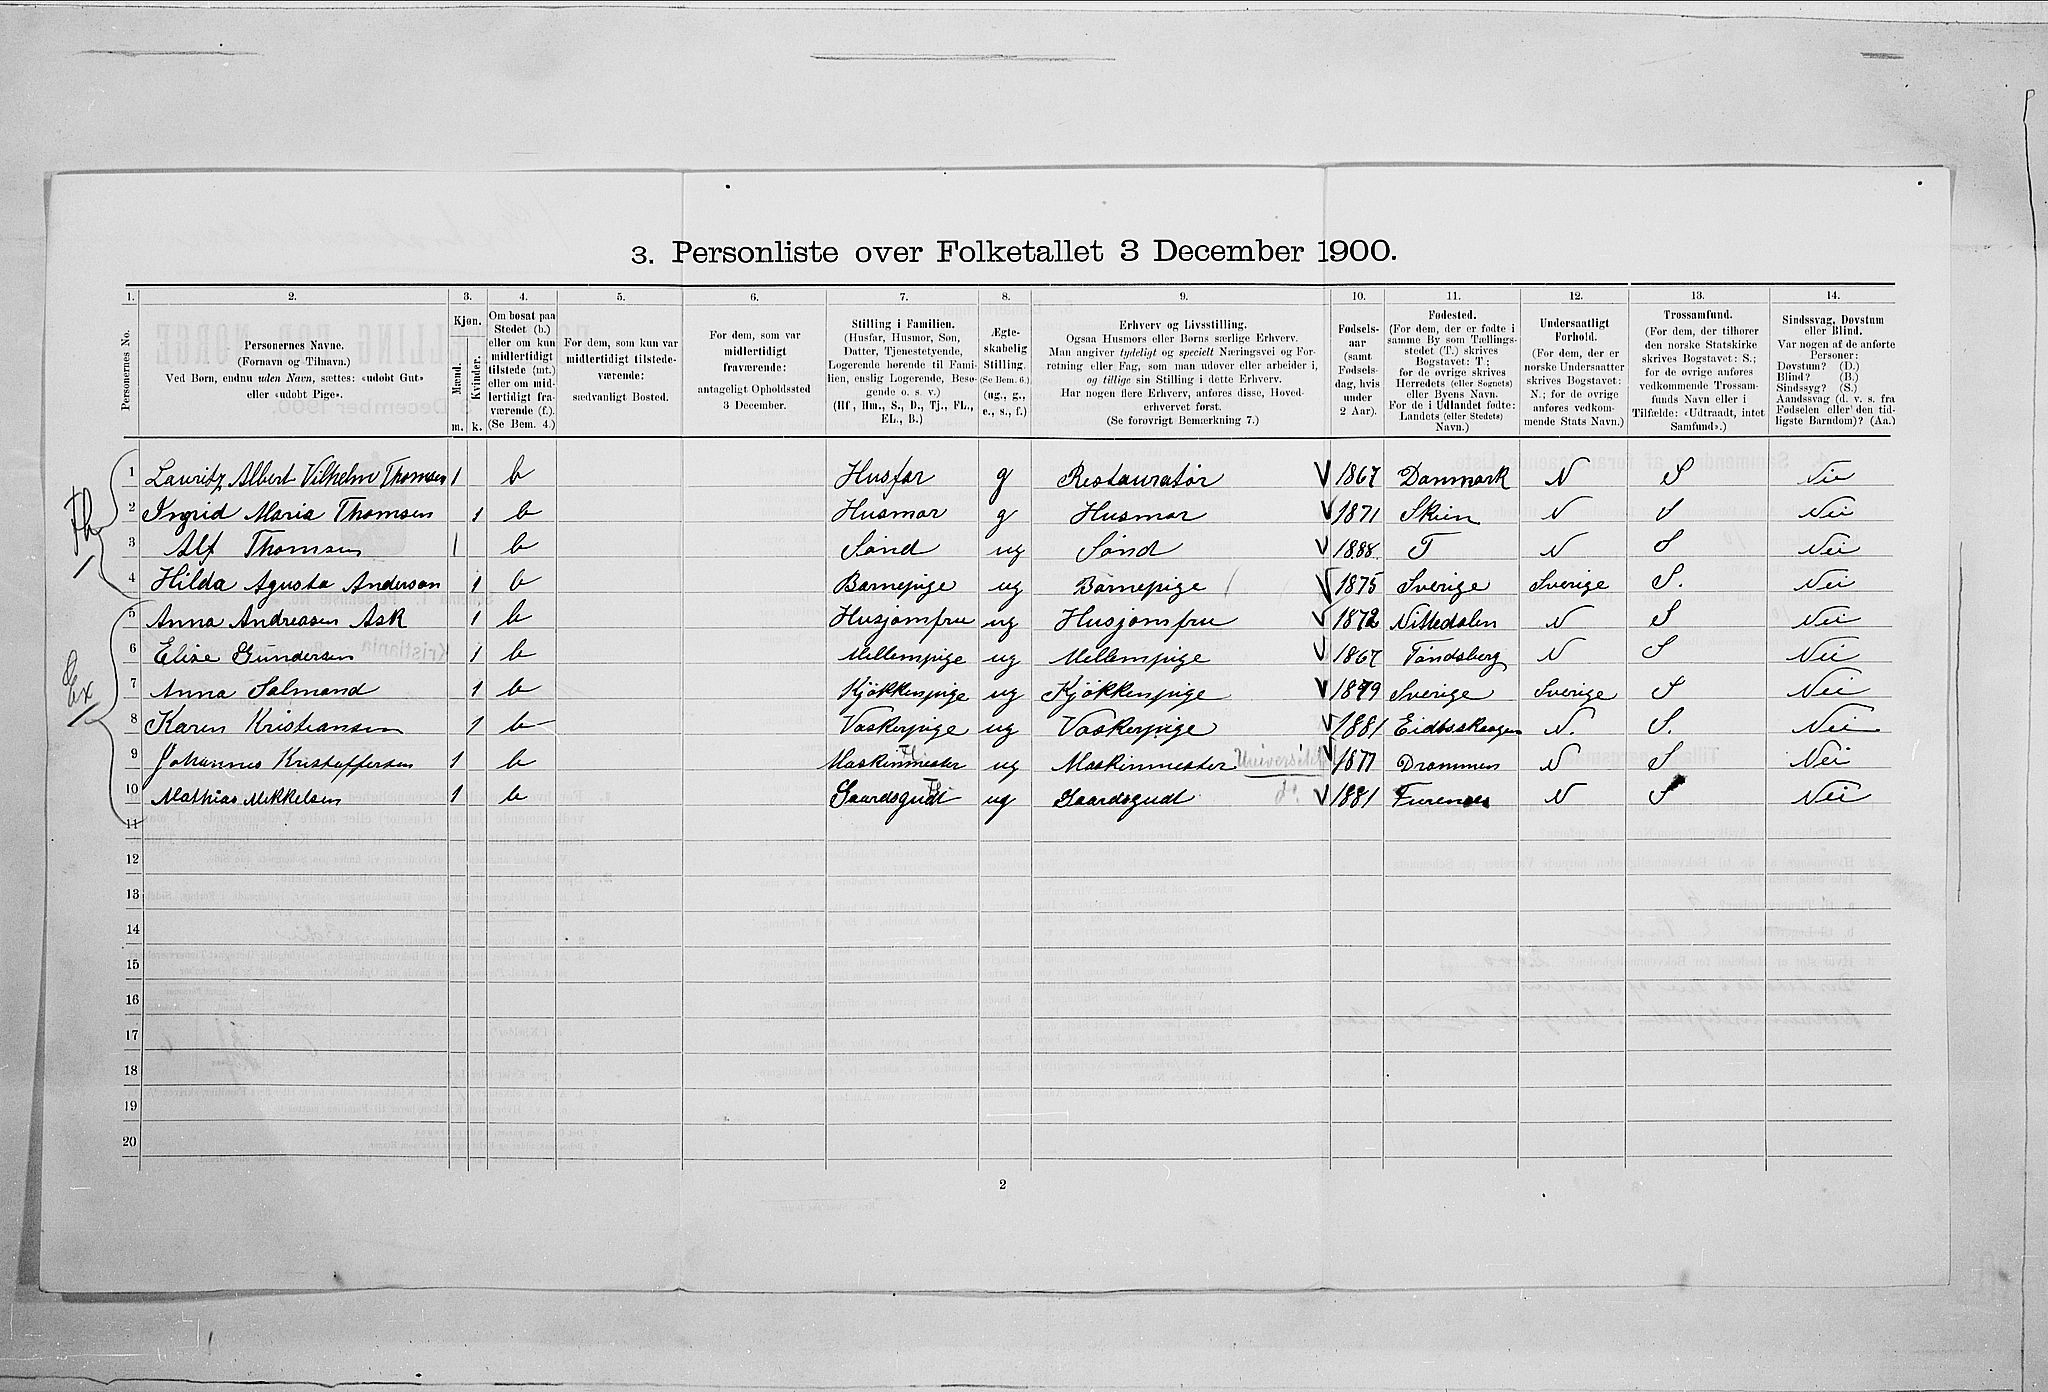 3. Personliste over Folketallet 3 December 1900.
1. 2. 3. 4. 5. 6. 7. 8. 9. 10. 11. 12. 13. 14.
Personernes No.
Personernes Navne.
(Fornavn og Tilnavn.)
Ved Børn, endnu uden Navn, sættes: «udøbt Gut»
eller «udøbt Pige».
Kjøn.
Mænd. Kvinder.
m. k.
Om bosat paa
Stedet (b.)
eller om kun
midlertidigt
tilstede (mt.)
eller om mid-
lertidigt fra-
værende (f.).
(Se Bem. 4.)
For dem, som kun var
midlertidigt tilstede-
værende:
sædvanligt Bosted.
For dem, som var
midlertidigt
fraværende:
antageligt Opholdssted
3 December.
Stilling i Familien.
(Husfar, Husmor, Søn,
Datter, Tjenestetyende,
Logerende hørende til Fami-
lien, enslig Logerende, Besø-
gende o. s. v.)
(Hf, Hm., S., D., Tj., FL.,
EL., B.)
Ægte-
skabelig
Stilling.
(Se Bem. 6.)
(ug., g.,
e., s., f.)
Erhverv og Livsstilling.
Ogsaa Husmors eller Børns særlige Erhverv.
Man angiver tydeligt og specielt Næringsvei og For-
retning eller Fag, som man udøver eller arbeider i,
og tillige sin Stilling i dette Erhverv.
Har nogen flere Erhverv, anføres disse, Hoved-
erhvervet først.
(Se forøvrigt Bemærkning 7.)
Fødsels-
aar
(samt
Fødsels-
dag, hvis
under
2 Aar).
Fødested.
(For dem, der er fødte i
samme By som Tællings-
stedet (T.) skrives
Bogstavet: T;
for de øvrige skrives
Herredets (eller Sognets)
eller Byens Navn.
For de i Udlandet fødte:
Landets (eller Stedets)
Navn.)
Undersaatligt
Forhold.
(For dem, der er
norske Undersaatter
skrives Bogstavet:
N.; for de øvrige
anføres vedkom-
mende Stats Navn.)
Trossamfund.
(For dem, der tilhører
den norske Statskirke
skrives Bogstavet: S.;
for de øvrige anføres
vedkommende Trossam-
funds Navn eller i
Tilfælde: «Udtraadt, intet
Samfund».)
Sindssvag, Døvstum
eller Blind.
Var nogen af de anførte
Personer:
Døvstum? (D.)
Blind? (B.)
Sindssyg? (S.)
Aandssvag (d. v. s. fra
Fødselen eller den tid-
ligste Barndom)? (Aa.)
1 Lauritz Albert Vilhelm Thomsen 1 b Husfar g Restauratør 1867 Danmark N S Nei
2 Ingrid Maria Thomsen 1 b Husmor g Husmor 1871 Skien N S Nei
3 Alf Thomsen 1 b Sønd ug Sønd 1888 T N S Nei
4 Hilda Agusta Anderson 1 b Barnepige ug Barnepige 1875 Sverige Sverige S. Nei
5 Anna Andreasen Ask 1 b Husjomfru ug Husjomfru 1872 Nittedalen N S Nei
6 Elise Gundersen 1 b Mellempige ug Mellempige 1867 Tøndsberg N S Nei
7 Anna Salmand 1 b Kjøkkenpige ug Kjøkkenpige 1879 Sverige Sverige S Nei
8 Karen Kristiansen 1 b Vaskerpige ug Vaskerpige 1881 Eidsskaagen N. S. Nei
9 Johannes Kristoffersen 1 b Maskinmester ug Maskinmester Universitet 1877 Drammen N S Nei
10 Mathias Mikkelsen 1 b Gaardsgudt ug Gaardsgudt do. 1881 Furenes N S Nei
11
12
13
14
15
16
17
18
19
20
Th
Ex
2